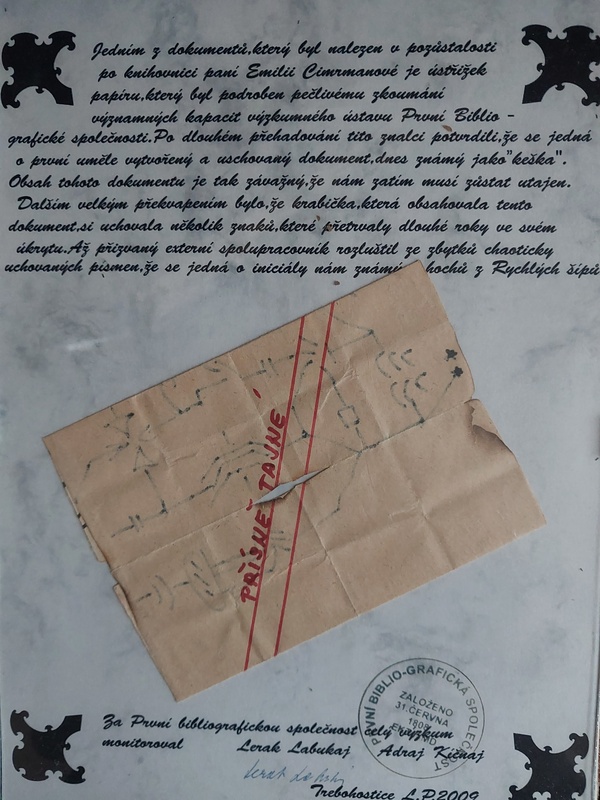 Jedním z dokumentů,který byl nalezen v pozůstalosti
po knihovnici paní Emilii Cimrmanové je ústřižek
papíru,který byl podroben pečlivému zkoumání
významných kapacit výzkumného ústavu První Biblio -
grafické společnosti.Po dlouhém přehadování tito znalci potvrdili,že se jedná
o první uměle vytvořený a uschovaný dokument,dnes známý jako"keška".
Obsah tohoto dokumentu je tak závažný,že nám zatím musí zůstat utajen.
Dalším velkým překvapením bylo,že krabička,která obsahovala tento
dokument,si uchovala několik znaků,které přetrvaly dlouhé roky ve svém
úkrytu.Až přizvaný externí spolupracovník rozluštil ze zbytků chaoticky
uchovaných písmen,že se jedná o iniciály nám známý hochů z Rychlých šípů
PŘÍSNĚ TAJNÉ
PRVNÍ BIBLIO-GRAFICKÁ SPOLEČNOST
ZALOŽENO
31.ČERVNA
1808
Za První bibliografickou společnost celý výzkum
monitoroval Lerak Labukaj Adraj Kičnaj
Trebohostice L.P.2009